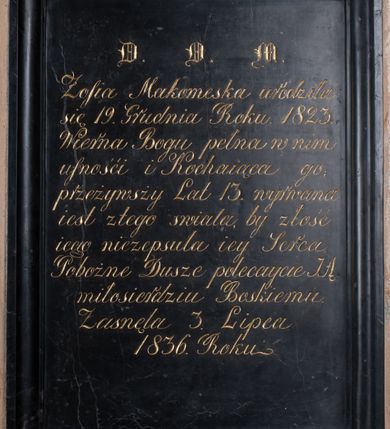 D. D. M.
Zofia Makomeska urodziła
się 19. Grudnia Roku. 1823.
Wierna Bogu pełna w nim
ufnośći i Kochaiąca go,
przeżywszy Lat 13. wyrwana
iest złego swiata, by złość
iego niezepsuła iey Serca.
Pobożne Dusze polecaycie JĄ
miłosierdziu Boskiemu.
Zasnęła 3. Lipca
1836. Roku